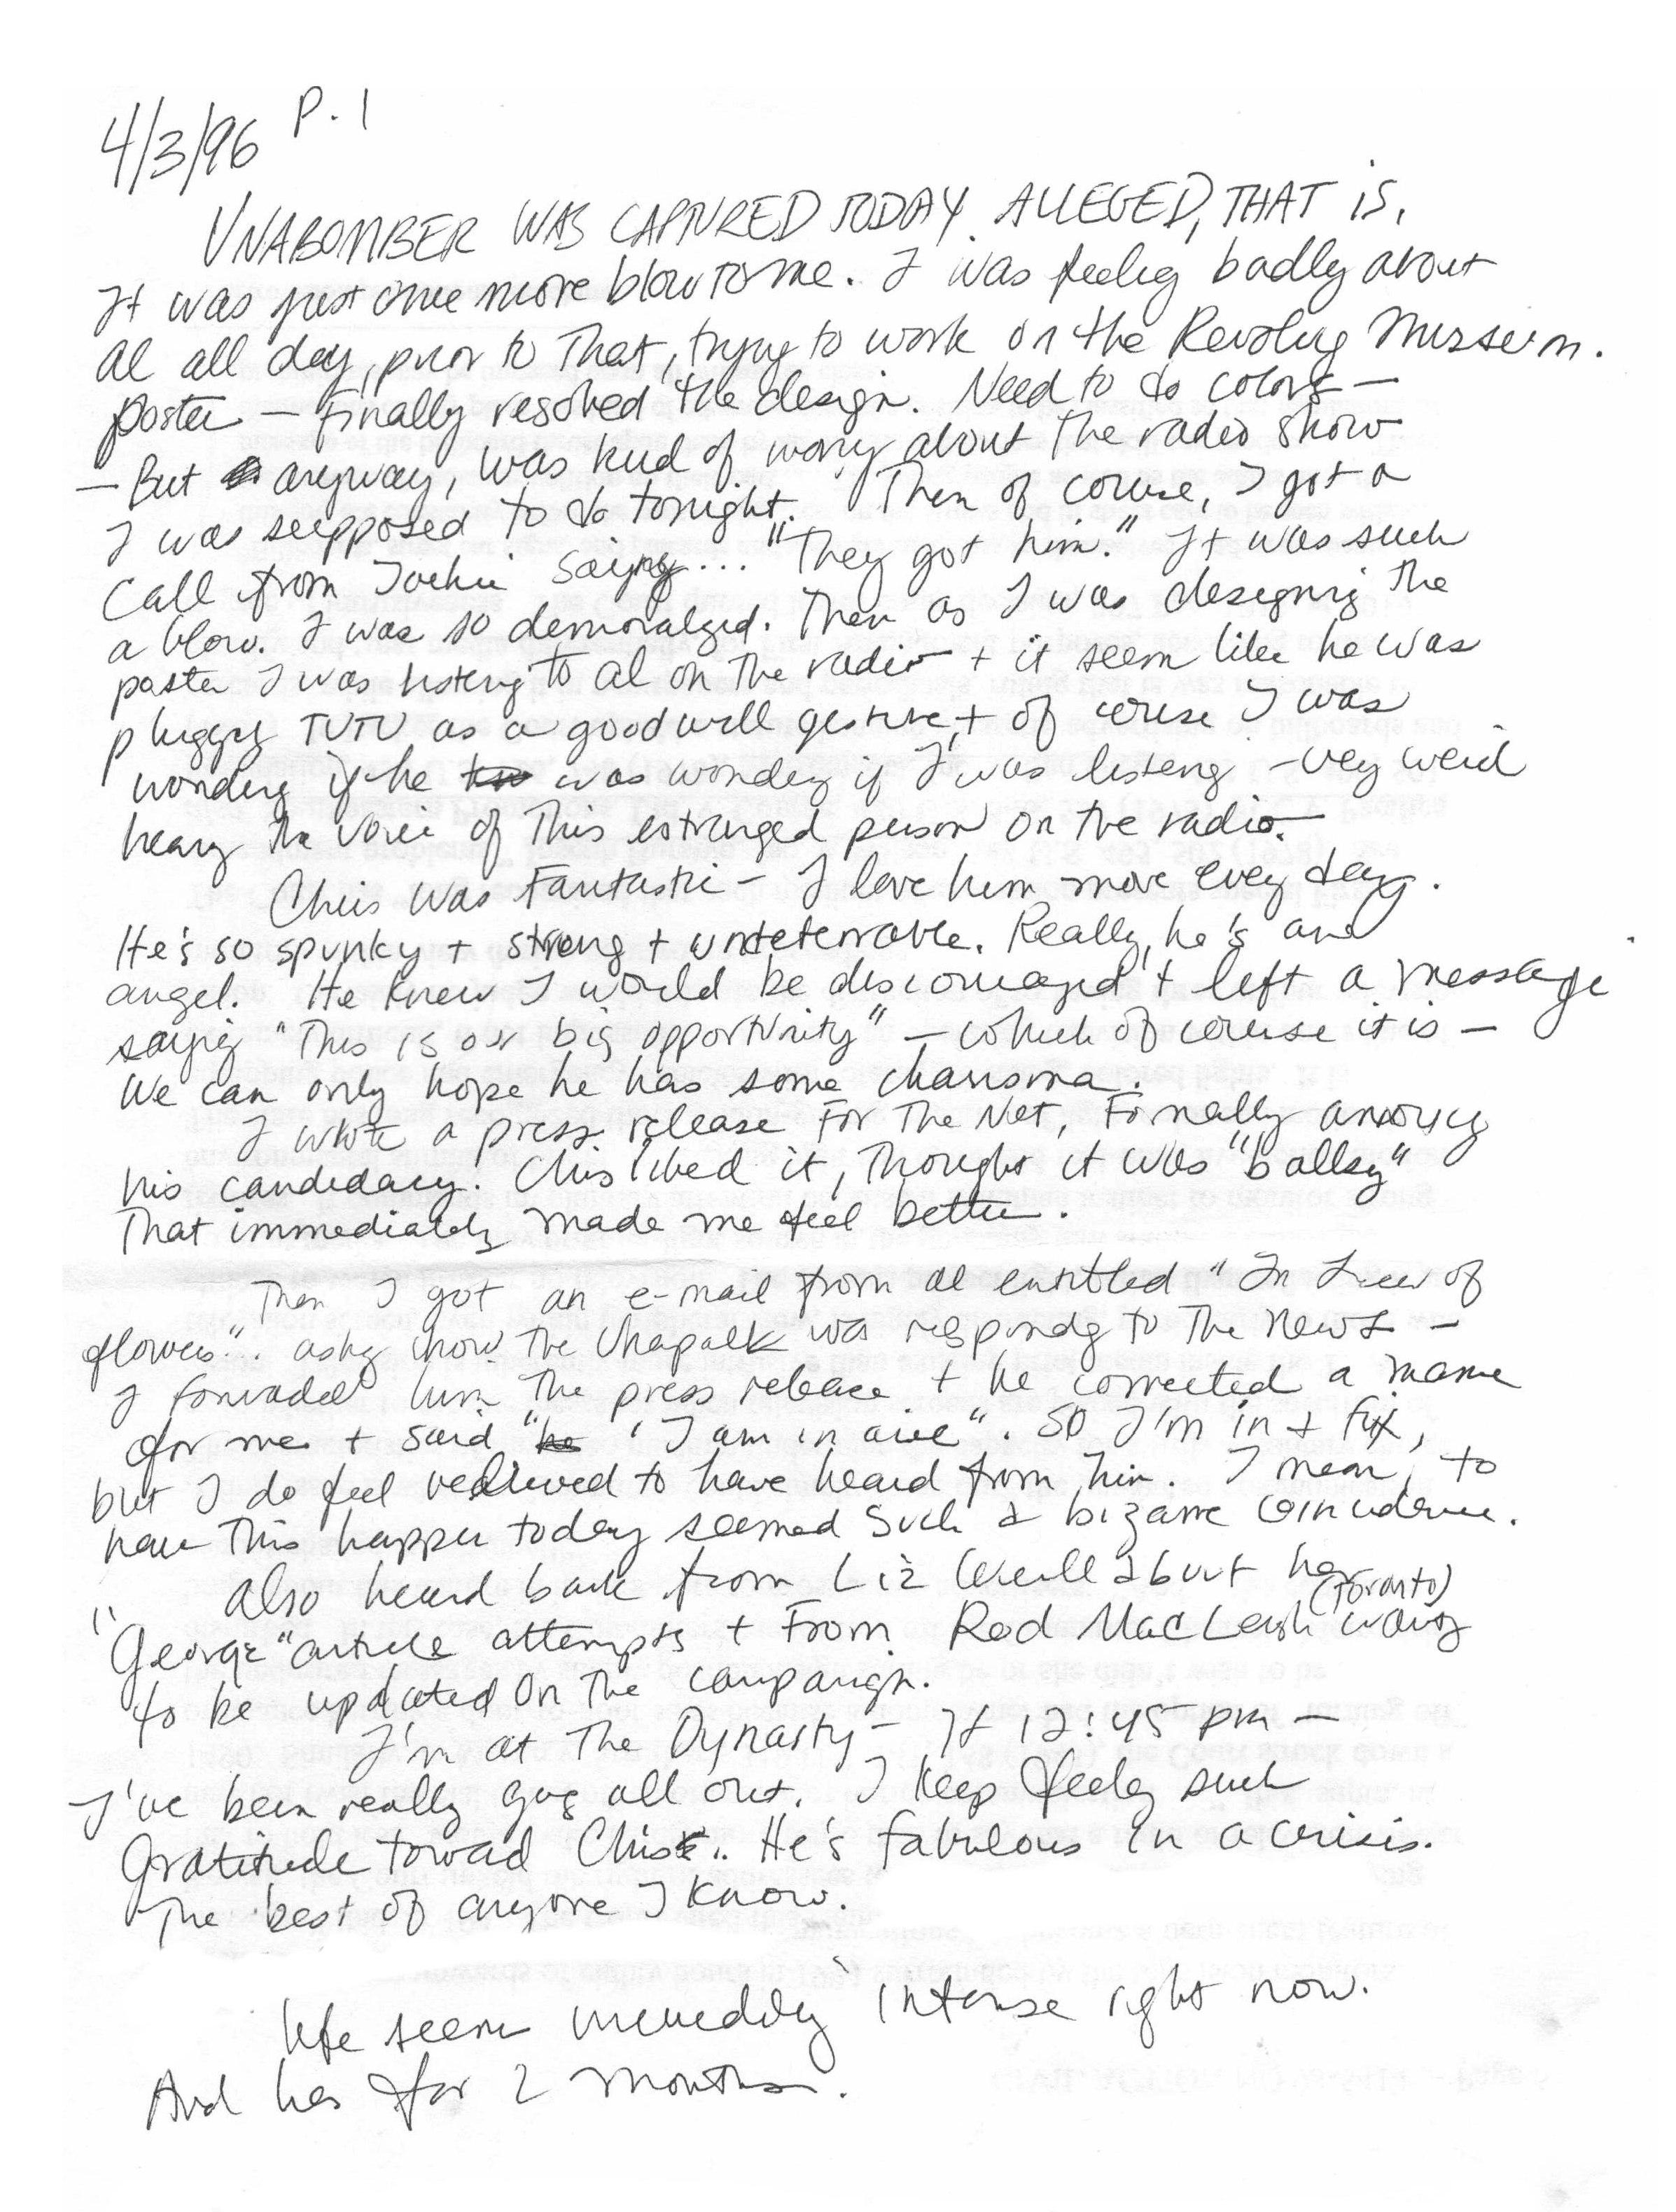 4/3/96 P. 1
UNABOMBER WAS CAPTURED TODAY. ALLEGED, THAT IS.
It was just one more blow to me. I was feeling badly about
Al all day, prior to that, trying to work on the Revolving Museum.
poster — Finally resolved the design. Need to do colors —
— But anyway, was kind of worry about the radio show
I was supposed to do tonight. Then of course, I got a
call from Jackie saying... "They got him." It was such
a blow. I was so demoralized. Then as I was designing the
poster I was listening to Al on the radio + it seem like he was
plugging TUTU as a goodwill gesture, + of course I was
wondering if he was wondering if I was listening - very weird
hearing the voice of this estranged person on the radio.
Chris was Fantastic - I love him more every day.
He's so spunky + strong + undeterrable. Really, he's an
angel. He knew I would be discouraged + left a message
saying "This is our big opportunity" — which of course it is —
We can only hope he has some charisma.
I wrote a press release For The Net, Formally announcing
his candidacy. Chris liked it, thought it was "ballsy"
That immediately made me feel better.
Then I got an e-mail from Al entitled "In Lieu of
flowers". asking how the was responding to The News —
I forwarded him The press release + he corrected a name
for me + said "I am in awe". SO I'm in a fix,
but I do feel relieved to have heard from him. I mean, to
have This happen today seemed such a bizarre coincidence.
Also heard back from Liz about her
"George" article attempts + From Rod MacLeish (Toronto) wants
to be updated on The campaign.
I'm at The Dynasty - It 12:45 pm —
I've been really going all out. I keep feeling such
Gratitude toward Chris.. He's fabulous in a crisis.
The best of anyone I know.
Life seems incredibly intense right now.
And has for 2 months.